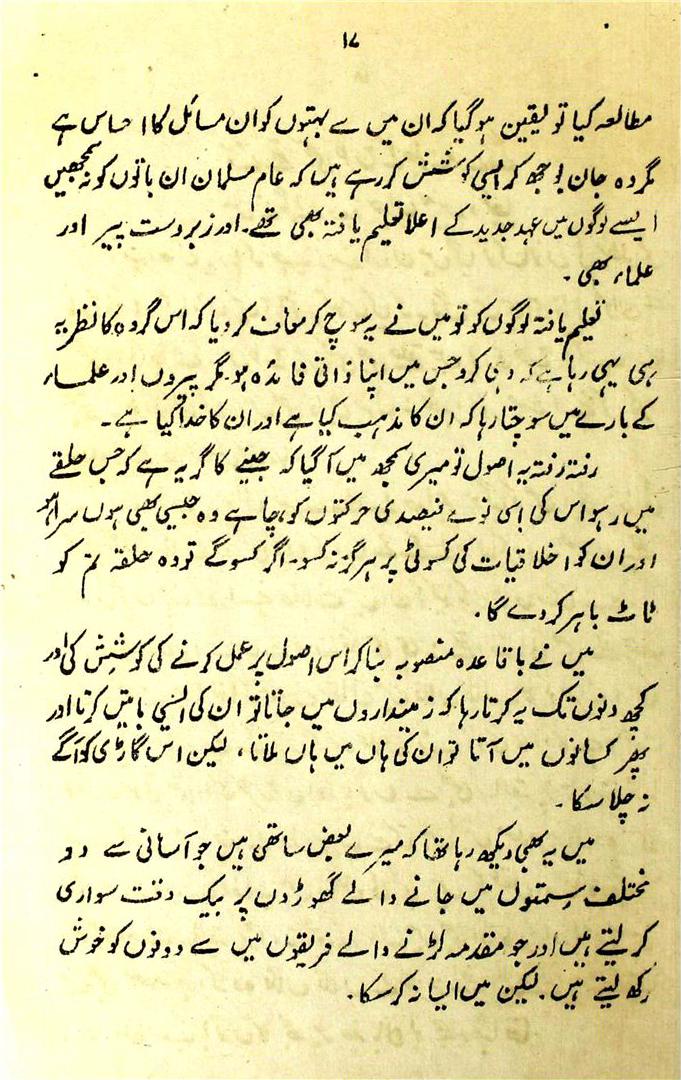 ۱۷
مطالعہ کیا تو یقین ہوگیا کہ ان میں سے بہتوں کو ان مسائل کا احساس ہے
مگر وہ جان بوجھ کر ایسی کوشش کر رہے ہیں کہ عام مسلمان ان باتوں کو نہ سمجھیں
ایسے لوگوں میں عہد جدید کے اعلا تعلیم یافتہ بھی تھے۔ اور زبردست پیر اور
علماء بھی۔
تعلیم یافتہ لوگوں کو تو میں نے یہ سوچ کر معاف کر دیا کہ اس گروہ کا نظریہ
ہی یہی رہا ہے کہ وہی کرو جس میں اپنا ذاتی فائدہ ہو۔ مگر پیروں اور علماء
کے بارے میں سوچتا رہا کہ ان کا مذہب کیا ہے اور ان کا خدا کیا ہے۔
رفتہ رفتہ یہ اصول تو میری سمجھ میں آگیا کہ جینے کا گر یہ ہے کہ جس حلقے
میں رہو اس کی اسی نوے فیصدی حرکتوں کو، چاہے وہ جیسی بھی ہوں سراہو
اور ان کو اخلاقیات کی کسوٹی پر ہرگز نہ کسو۔ اگر کسوگے تو وہ حلقہ تم کو
ٹاٹ باہر کر دے گا۔
میں نے باقاعدہ منصوبہ بنا کر اس اصول پر عمل کرنے کی کوشش کی اور
کچھ دنوں تک یہ کرتا رہا کہ زمینداروں میں جاتا تو ان کی ایسی باتیں کرتا اور
پھر کسانوں میں آتا تو ان کی ہاں میں ہاں ملاتا، لیکن اس گاڑی کو آگے
نہ چلا سکا۔
میں یہ بھی دیکھ رہا تھا کہ میرے بعض ساتھی ہیں جو آسانی سے دو
مختلف سمتوں میں جانے والے گھوڑوں پر بیک وقت سواری
کر لیتے ہیں اور جو مقدمہ لڑنے والے فریقوں میں سے دونوں کو خوش
رکھ لیتے ہیں۔ لیکن میں ایسا نہ کر سکا۔